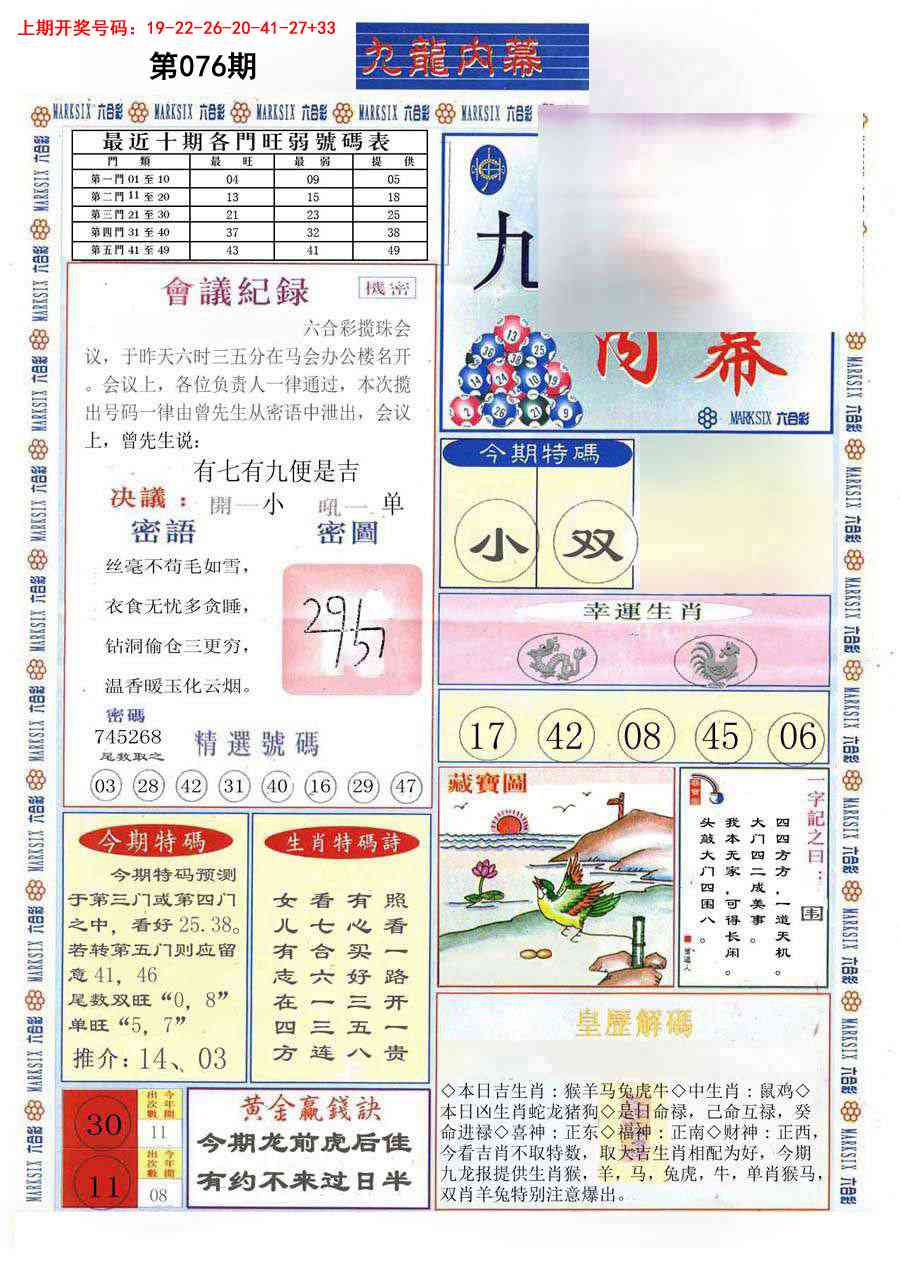 上期开奖号码：19-22-26-20-41-27+33
第076期
九龍内幕
MARKSIX 六合彩 MARKSIX 六合彩 MARKSIX 六合彩 MARKSIX 六合彩 MARKSIX 六合彩
最近十期各門旺弱號碼表
門 類 最 旺 最 弱 提 供
第一門 01 至 10 04 09 05
第二門 11 至 20 13 15 18
第三門 21 至 30 21 23 25
第四門 31 至 40 37 32 38
第五門 41 至 49 43 41 49
九
内幕
13
36 38 25
14 24 10 19
2 26 21 9
MARKSIX 六合彩
會議紀録
機密
六合彩揽珠会
议，于昨天六时三五分在马会办公楼名开
。会议上，各位负责人一律通过，本次揽
出号码一律由曾先生从密语中泄出，会议
上，曾先生说：
有七有九便是吉
决議： 開一小 吼一 单
密語 密圖
丝毫不苟毛如雪，
衣食无忧多贪睡，
钻洞偷仓三更穷，
温香暖玉化云烟。
密碼
745268
尾数取之
精選號碼
03 28 42 31 40 16 29 47
今期特碼
小 双
幸運生肖
17 42 08 45 06
今期特碼
今期特码预测
于第三门或第四门
之中，看好 25.38。
若转第五门则应留
意 41，46
尾数双旺“0，8”
单旺“5，7”
推介：14、03
生肖特碼詩
照看一路开一贵
有心买好三五八
看七合六一三连
女儿有志在四方
藏寶圖
一字記之曰：
围
四四方方，一道天机。
大门四二成美事。
我本无家，可得长闲。
头敲大门四围八。
皇歷解碼
◇本日吉生肖：猴羊马兔虎牛◇中生肖：鼠鸡◇
本日凶生肖蛇龙猪狗◇是日命禄，己命互禄，癸
命进禄◇喜神：正东◇福神：正南◇财神：正西，
今看吉肖不取特数，取大吉生肖相配为好，今期
九龙报提供生肖猴，羊，马，兔虎，牛，单肖猴马，
双肖羊兔特别注意爆出。
30
今年開出次數
11
11
今年開出次數
08
黄金赢錢訣
今期龙前虎后佳
有约不来过日半